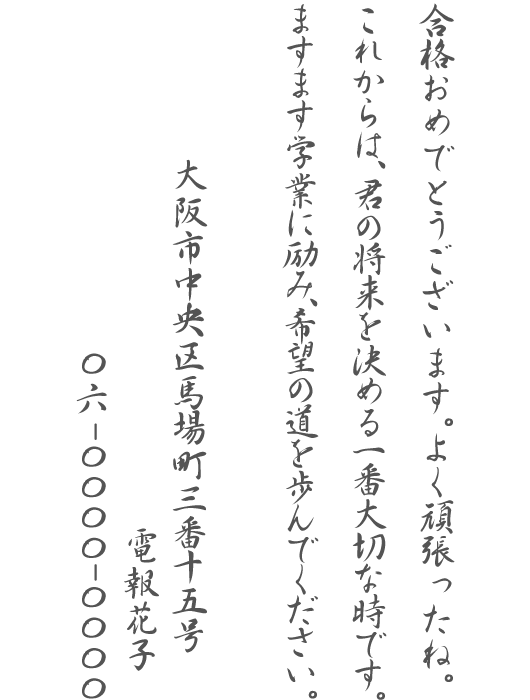 合格おめでとうございます。よく頑張ったね。
これからは、君の将来を決める一番大切な時です。
ますます学業に励み、希望の道を歩んでください。
大阪市中央区馬場町三番十五号
電報花子
〇六−〇〇〇〇−〇〇〇〇